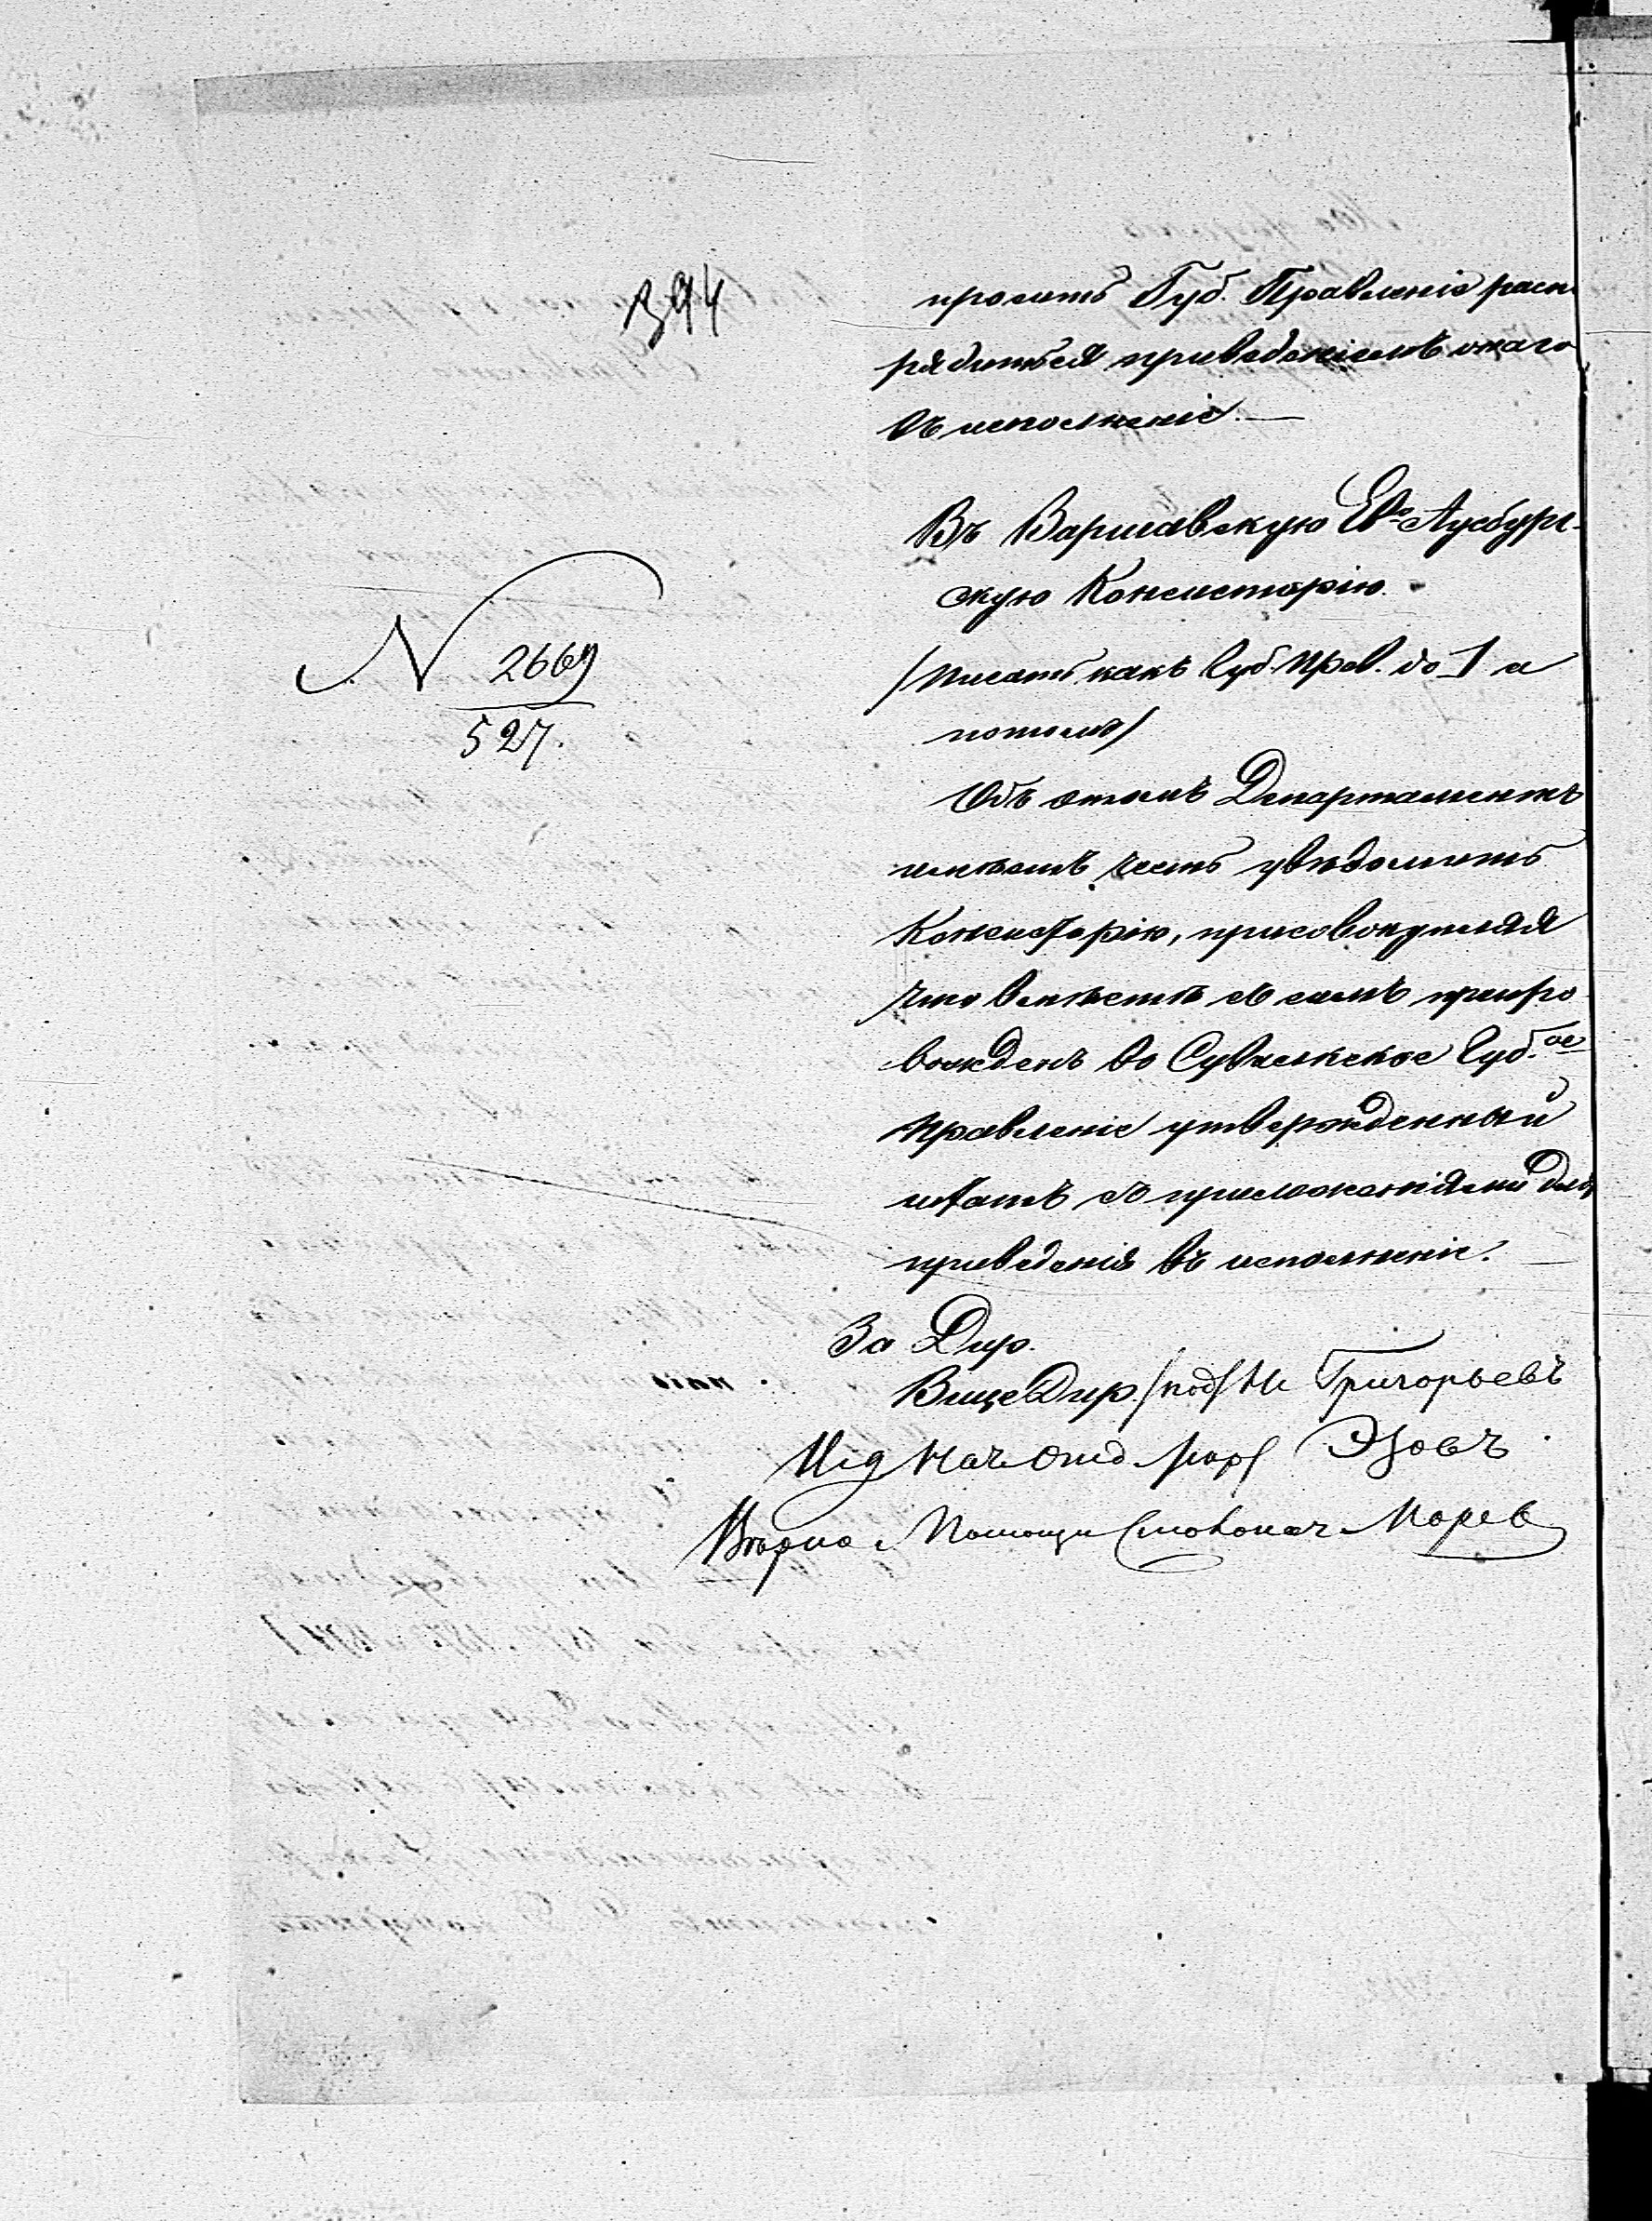 394
проситъ Губ. Правленіе распо
рядиться приведеніемъ онаго
въ исполненіе.—
№ 2669
527.
Въ Варшавскую Ев-Аусбург-
скую Консисторію.
/Писать какъ Губ. Прав. до 1 а
потомъ/
Объ этомъ Департаментъ
имѣетъ честь увѣдомить
Консисторію, присовокупляя
что вмѣстѣ съ симъ препро
вожденъ во Сувалкское Губ.ое
Правленіе утвержденный
штатъ съ приложеніями для
приведенія въ исполненіе.
За Дир.
Вице Дир. /под/ Н. Григорьевъ
И д Нач Отд. Эзовъ
Вѣрно. Помощн Столонач Марев